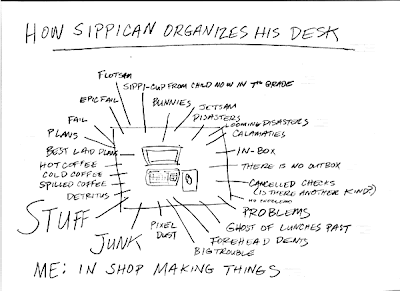 HOW SIPPICAN ORGANIZES HIS DESK
FLOTSAM
SIPPI-CUP FROM CHILD NOW IN 7TH GRADE
EPIC FAIL
BUNNIES
JETSAM
FAIL
DISASTERS
LOOMING DISASTERS
PLANS
CALAMITIES
BEST LAID PLANS
IN-BOX
HOT COFFEE
THERE IS NO OUTBOX
COLD COFFEE
SPILLED COFFEE
CANCELLED CHECKS
(IS THERE ANOTHER KIND?)
DETRITUS
NO PROBLEMO
STUFF
PROBLEMS
JUNK
PIXEL
DUST
GHOST OF LUNCHES PAST
FOREHEAD DENTS
BIG TROUBLE
ME: IN SHOP MAKING THINGS